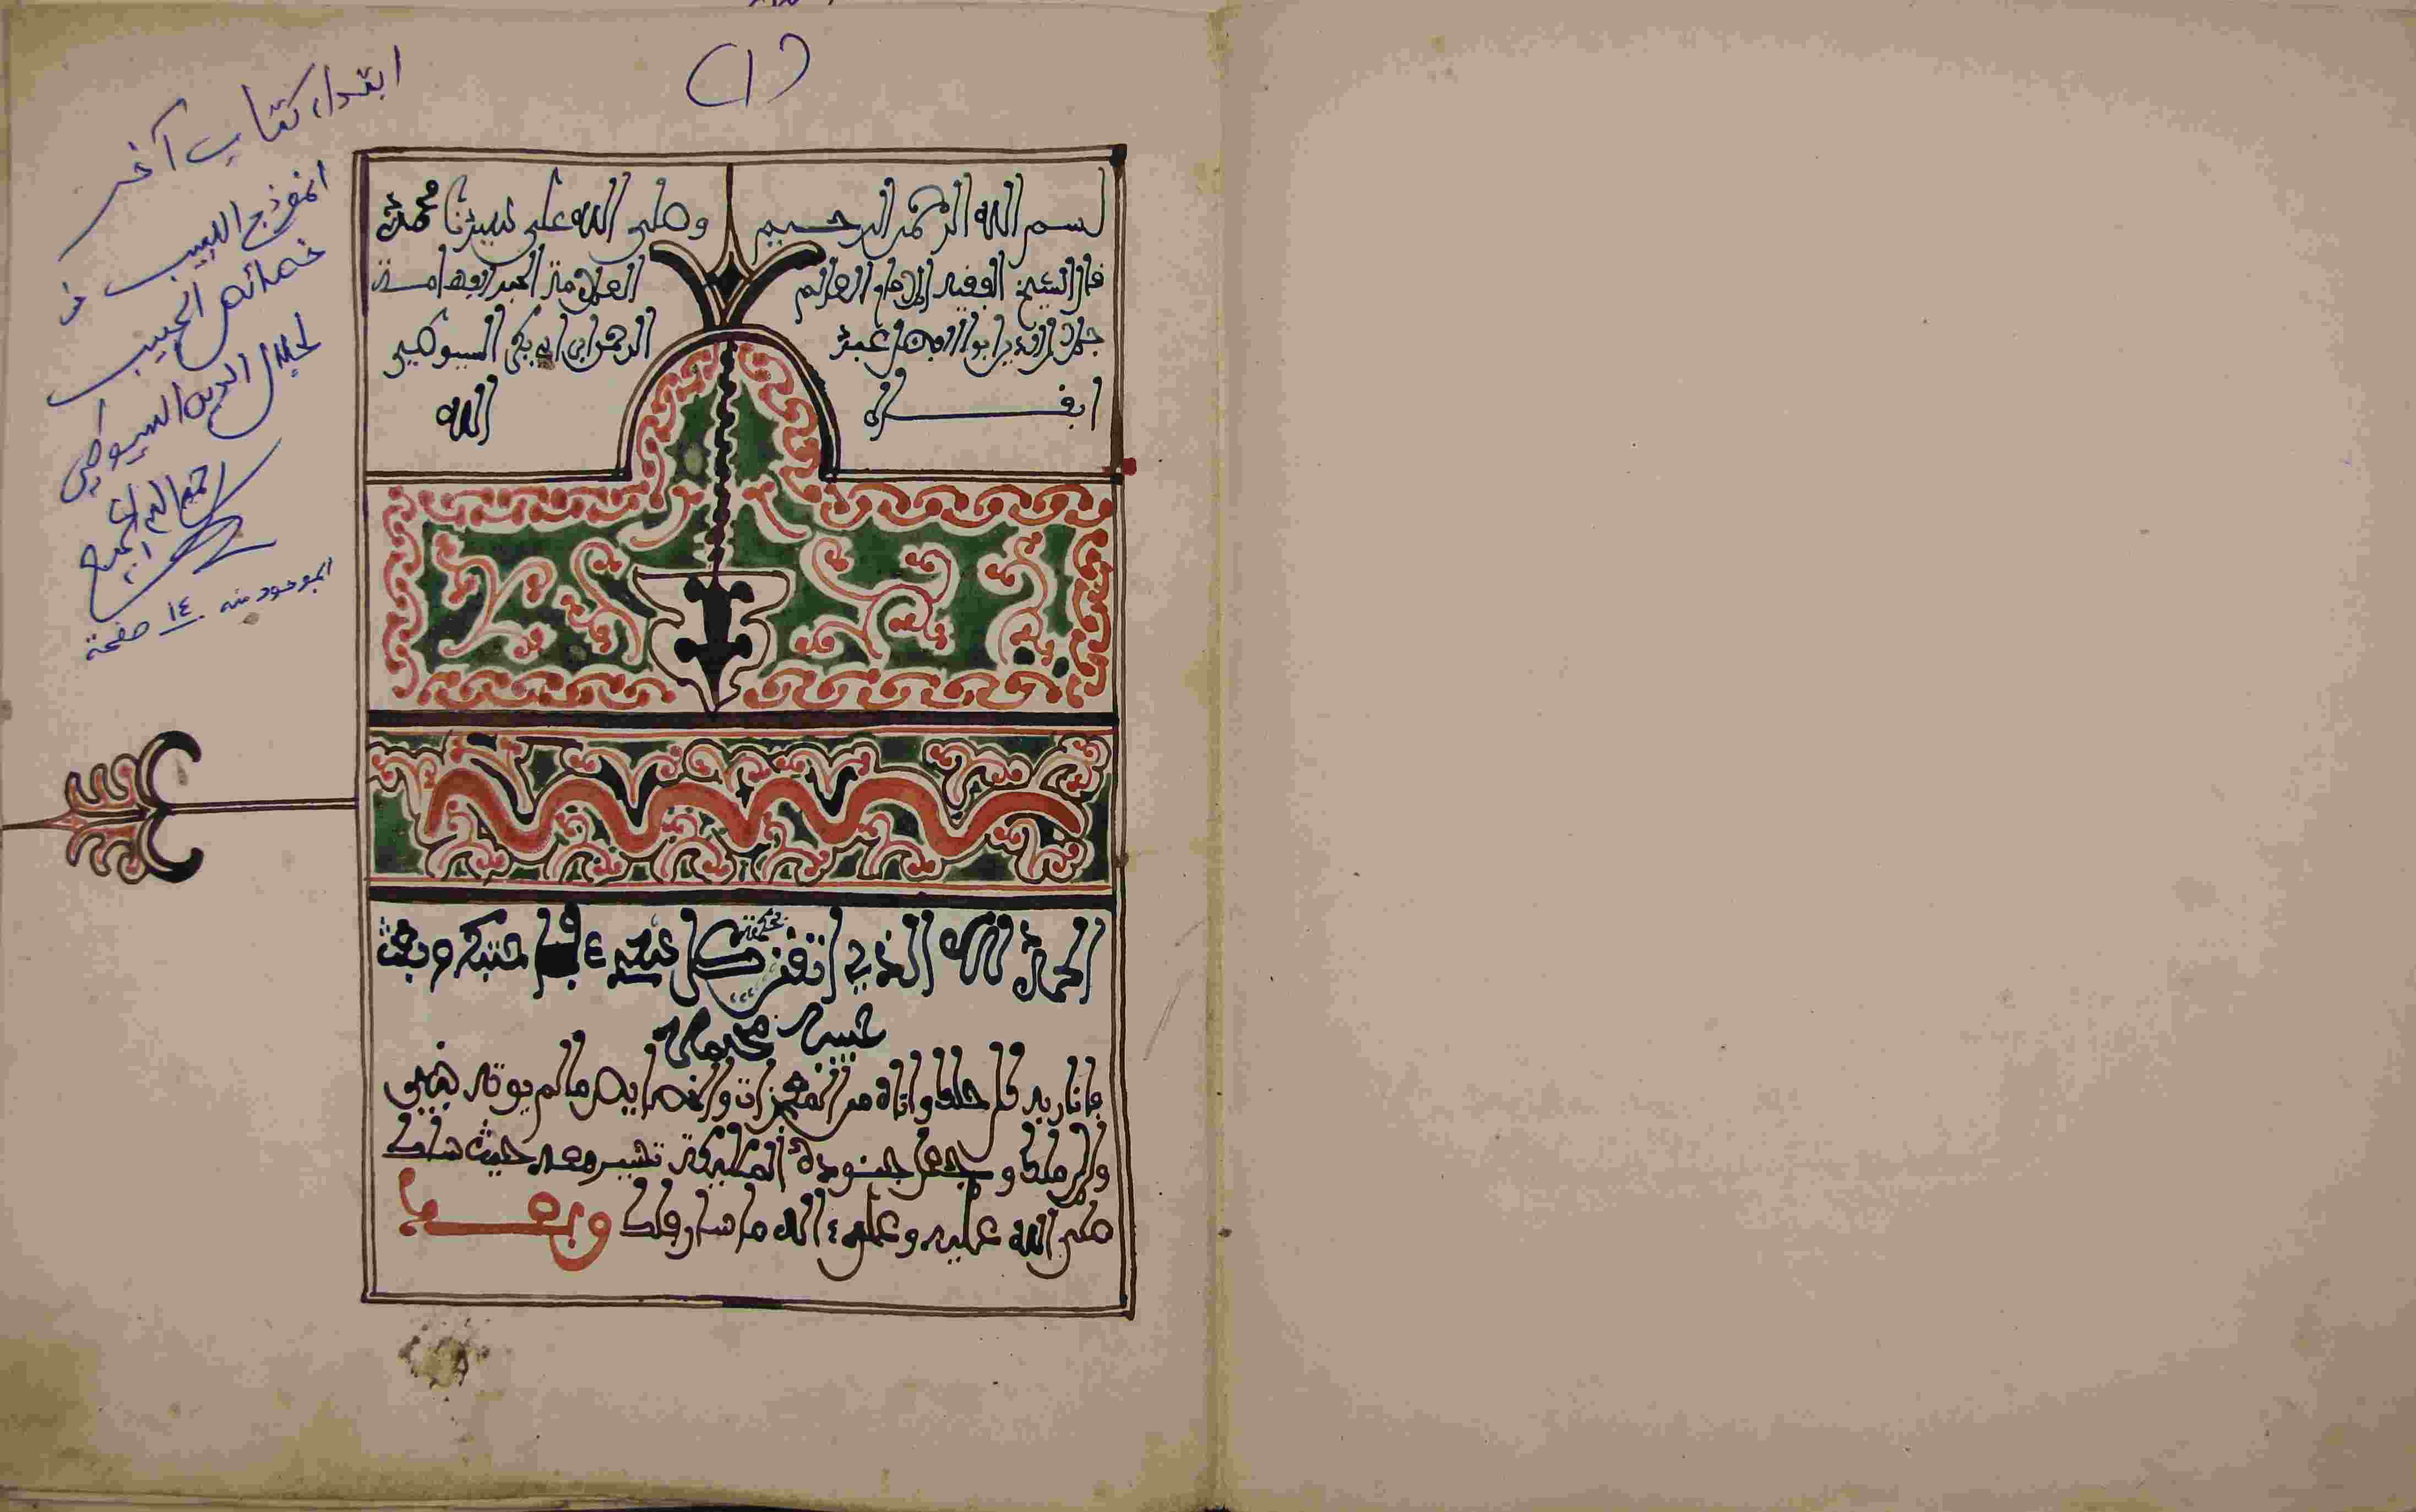 (١)
ابتداء كتاب آخر
انموذج اللبيب في
خصائص الحبيب
لجلال الدين السيوطي
رحمه الله
الموجود منه ١٤ صفحة
بسم الله الرحمن الرحيم وصلى الله على سيدنا محمد
قال الشيخ الفقيه الامام العالم العلامة الحبر الفهامة
جلال الدين ابو الفضل عبد الرحمن ابن ابي بكر السيوطي
ابقـــاه الله
الحمد لله الذي اتقن بحكمته وبعث
حبيبه محمدا
والخصايص ما لم يوته نبي
ولا ملك وجعل جنوده الملايكة تسير معه حيث سلك
صلى الله عليه وعلى ءاله ما سار فلك وبعـــد